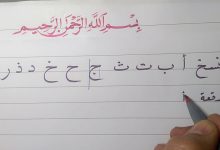 بِسْمِ اللَّهِ الرَّحْمَنِ الرَّحِيمِ
نسخ أ ب ت ث ج ح خ د ذ ر
رقعة